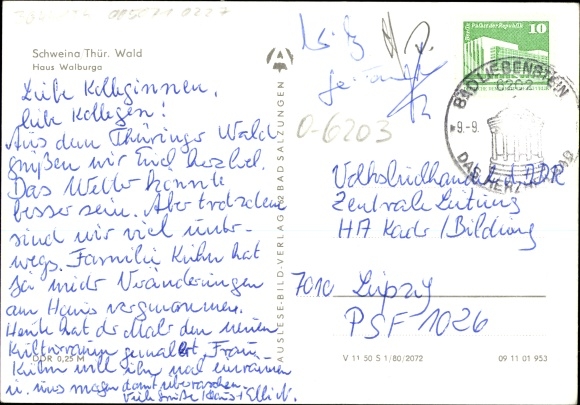 Schweina Thür. Wald
Haus Walburga
Liebe Kolleginnen,
liebe Kollegen!
Aus dem Thüringer Wald
grüßen wir Euch herzlich.
Das Wetter könnte
besser sein. Aber trotzdem
sind wir viel unter-
wegs. Familie Kühn hat
ja wieder Veränderungen
am Haus vorgenommen.
Heute hat der Maler den neuen
Kulturraum gemalert. Frau
Kühn will ihn mal einräumen
u. uns morgen damit überraschen.
Viele Grüße Klaus + Elli N.
DDR 0,25 M
AUSLESE-BILD-VERLAG BAD SALZUNGEN
0-6203
Berlin, Palast der Republik
10
DDR
BAD LIEBENSTEIN
6202
-9.-9.
DAS HERZ
Volksbuchhandel d. DDR
Zentrale Leitung
HA Kader/Bildung
7010 Leipzig
PSF 1026
V 11 50 S 1/80/2072
09 11 01 953